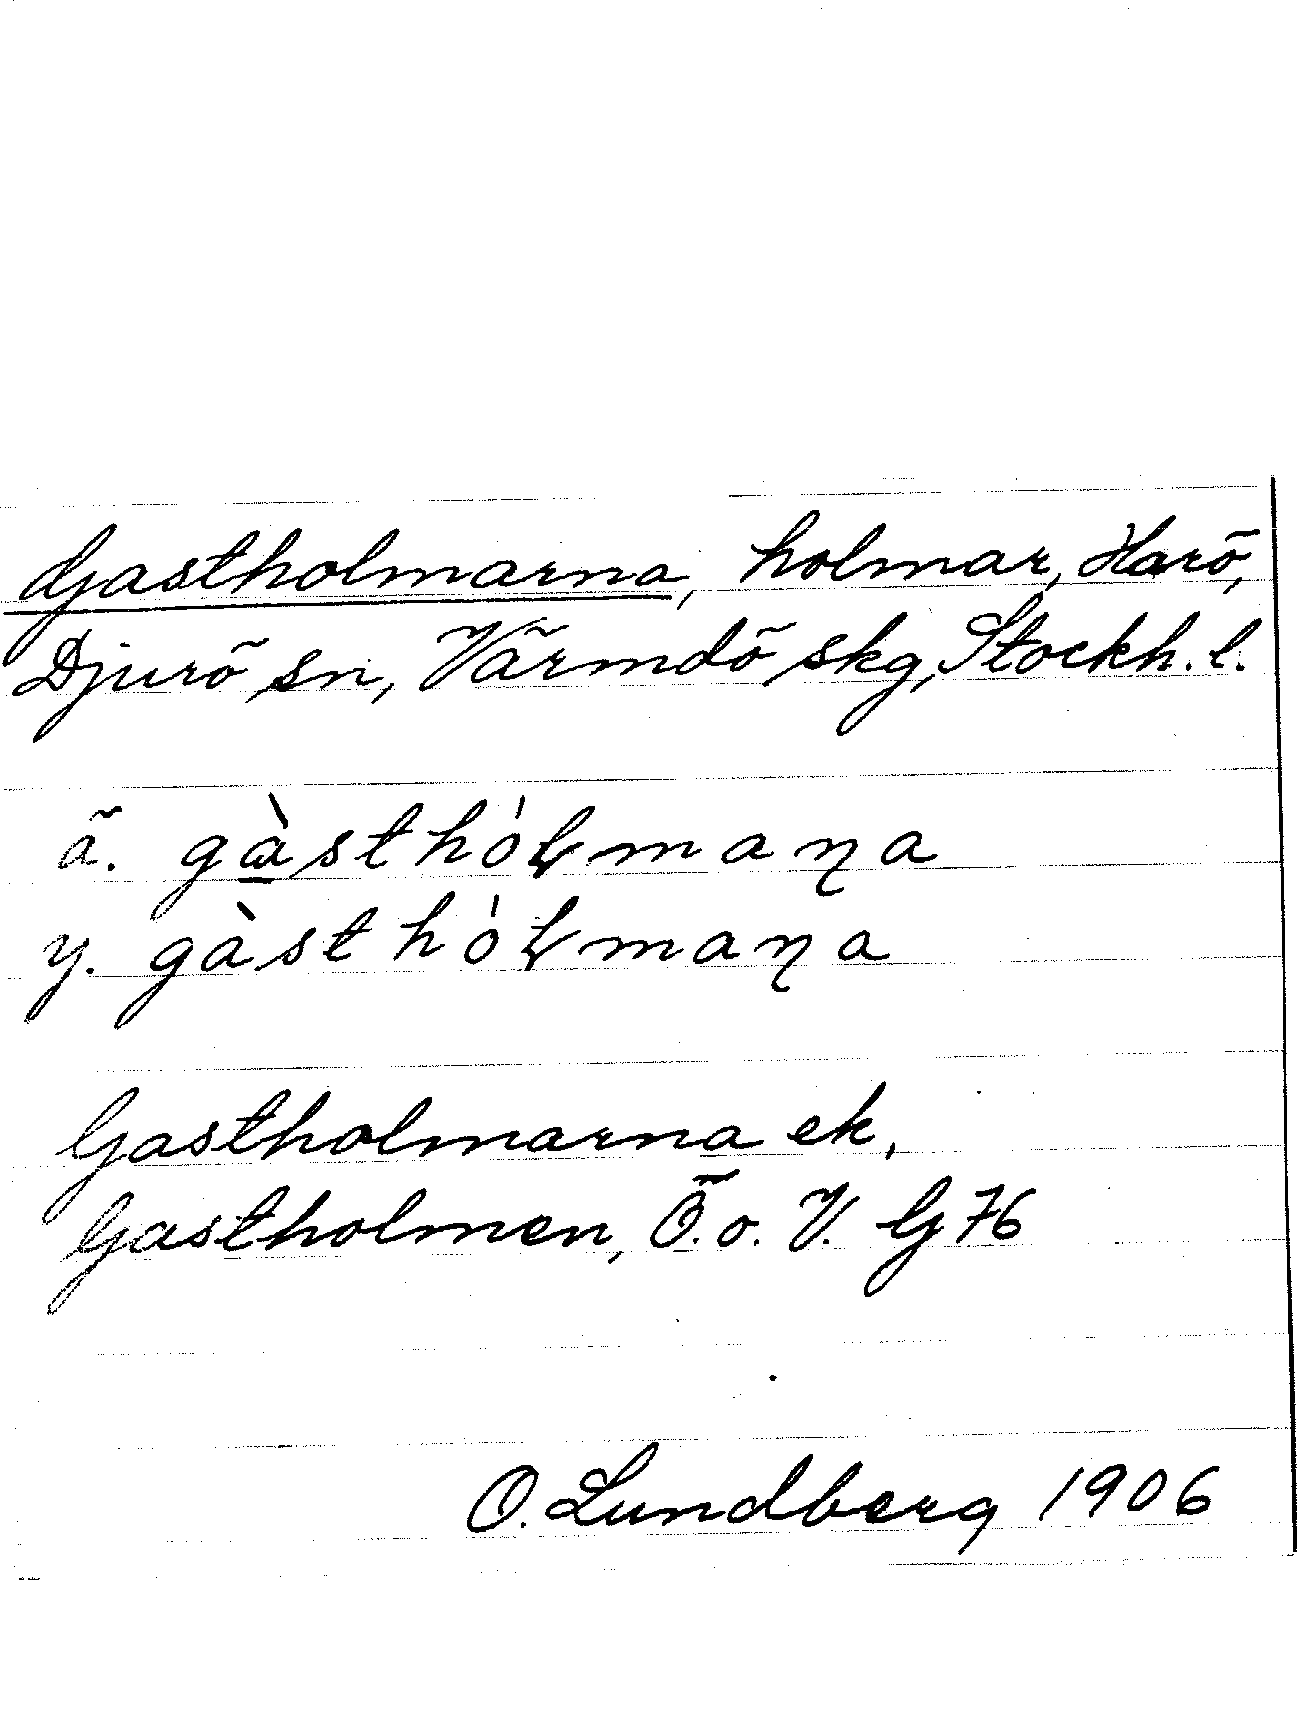 Gastholmarna, holmar, Harö,
Djurö sn, Värmdö skg, Stockh. l.
ä. gàsthóɽmaɳa
y. gàsthóɽmaɳa
Gastholmarna ek,
Gastholmen, Ö. o. V. G 76
O. Lundberg 1906